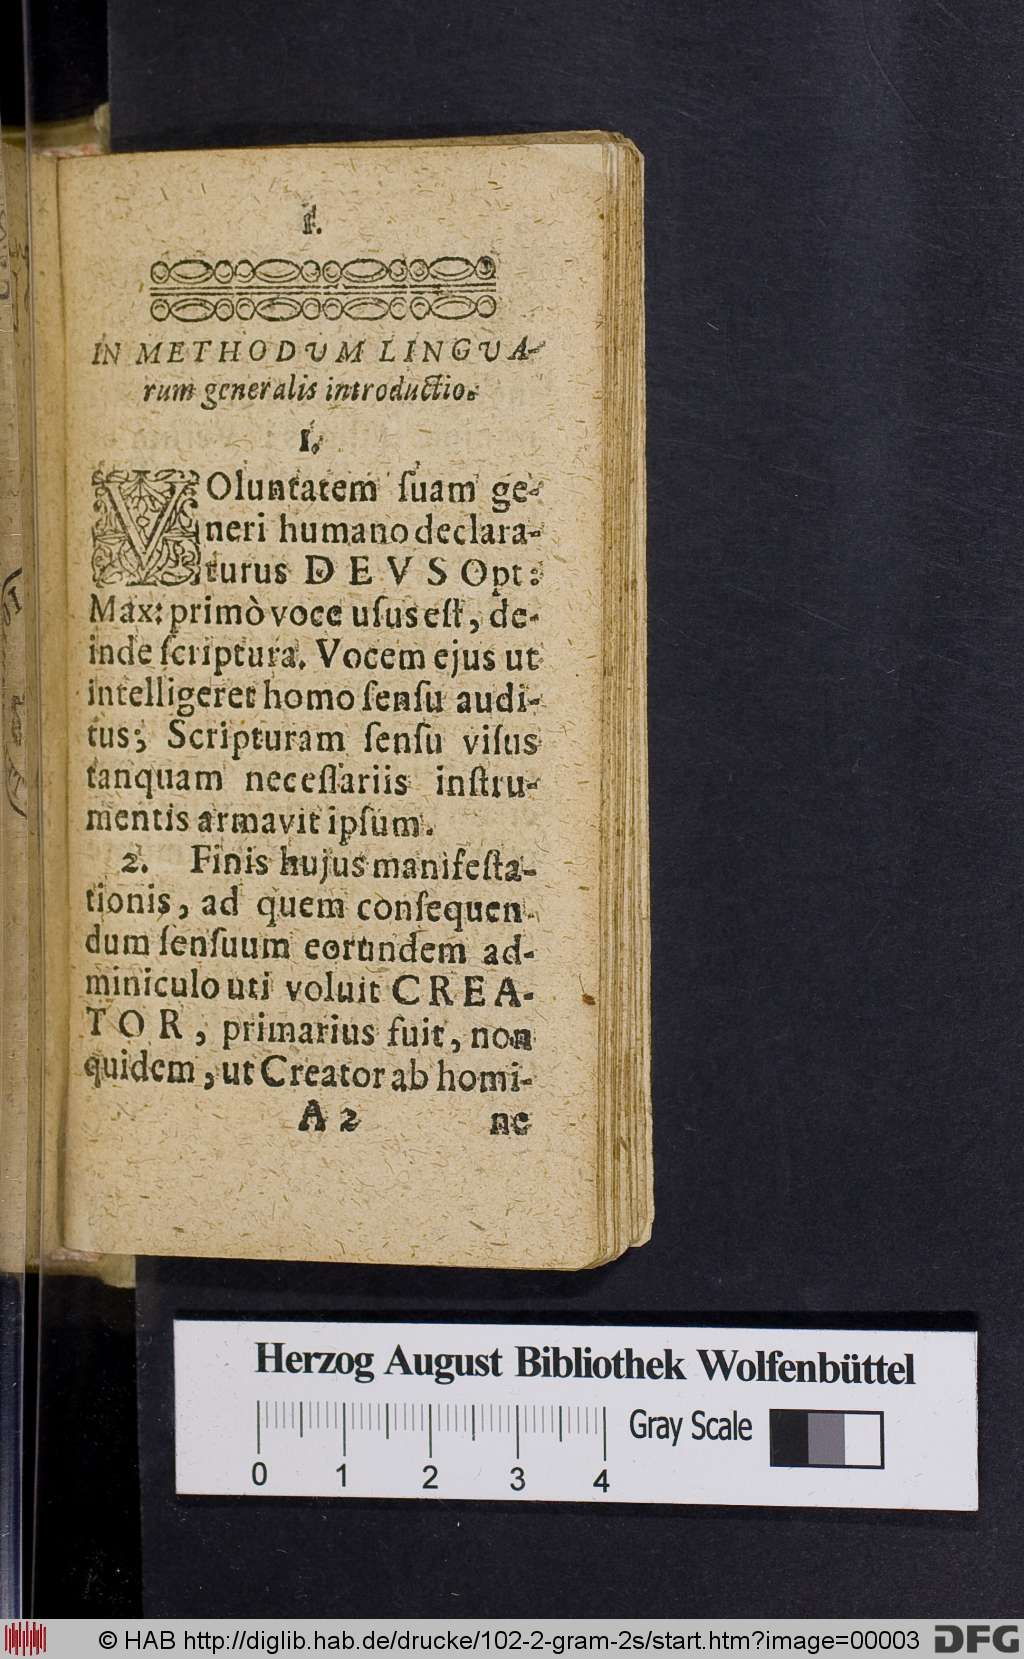 I.
IN METHODVM LINGVA-
rum generalis introductio.
I.
VOluntatem ſuam ge-
neri humano declara-
turus DEVS Opt:
Max: primò voce uſus eſt, de-
inde ſcriptura. Vocem ejus ut
intelligeret homo ſenſu audi-
tus; Scripturam ſenſu viſus
tanquam neceſſariis inſtru-
mentis armavit ipſum.
2. Finis hujus manifeſta-
tionis, ad quem conſequen-
dum ſenſuum eorundem ad-
miniculo uti voluit CREA-
TOR, primarius fuit, non
quidem, ut Creator ab homi-
A 2 ne
Herzog August Bibliothek Wolfenbüttel
Gray Scale
0 1 2 3 4
© HAB http://diglib.hab.de/drucke/102-2-gram-2s/start.htm?image=00003 DFG